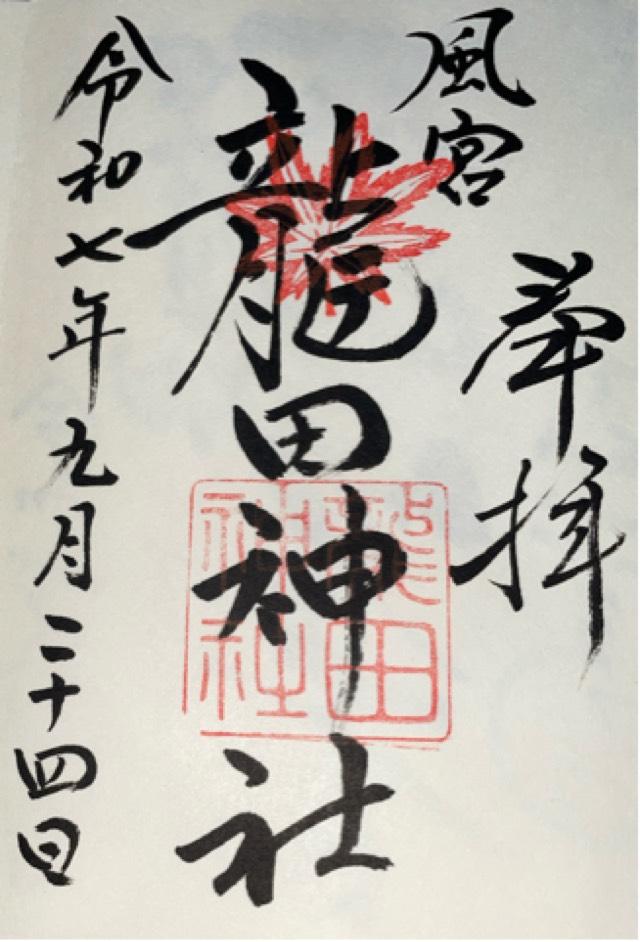 風宮
奉拝
龍田神社
龍田神社
令和七年九月二十四日